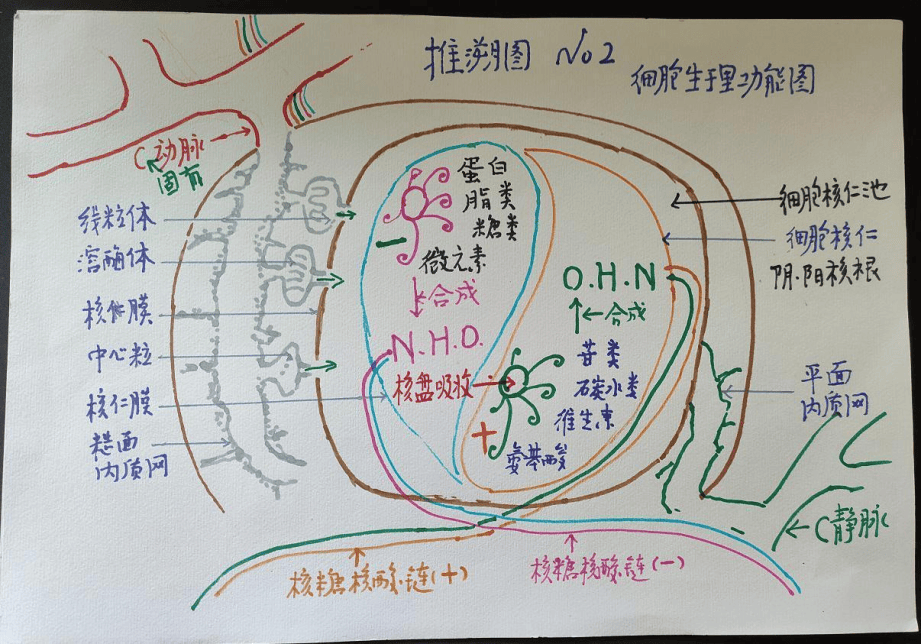 推溯图 No2
细胞生理功能图
C动脉
固有
线粒体
溶酶体
核体膜
中心粒
核仁膜
糙面
内质网
蛋白
脂类
糖类
微元素
合成
N.H.O.
核盘吸收
O.H.N
合成
苷类
碳水类
维生素
氨基酸
细胞核仁池
细胞核仁
阴.阳核根
平面
内质网
C静脉
核糖核酸链(+)
核糖核酸链(-)